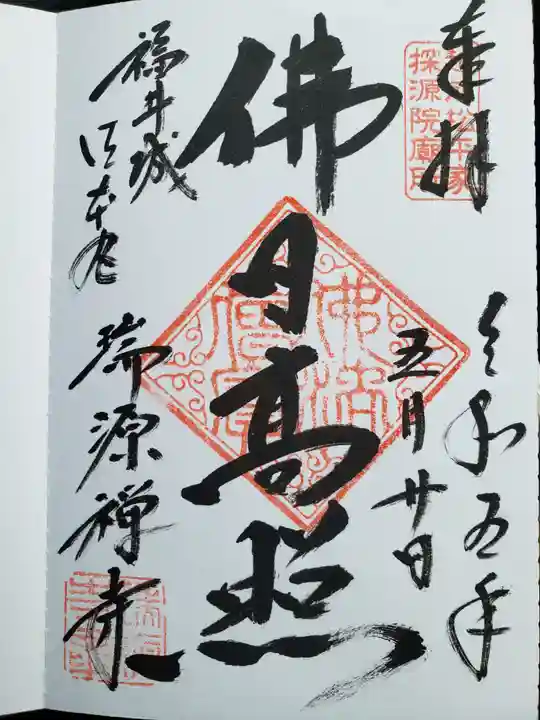 奉拝
松平家
探源院廟所
令和五年
五月廿日
佛日高照
佛法僧寳
福井城
御本丸
瑞源禅寺